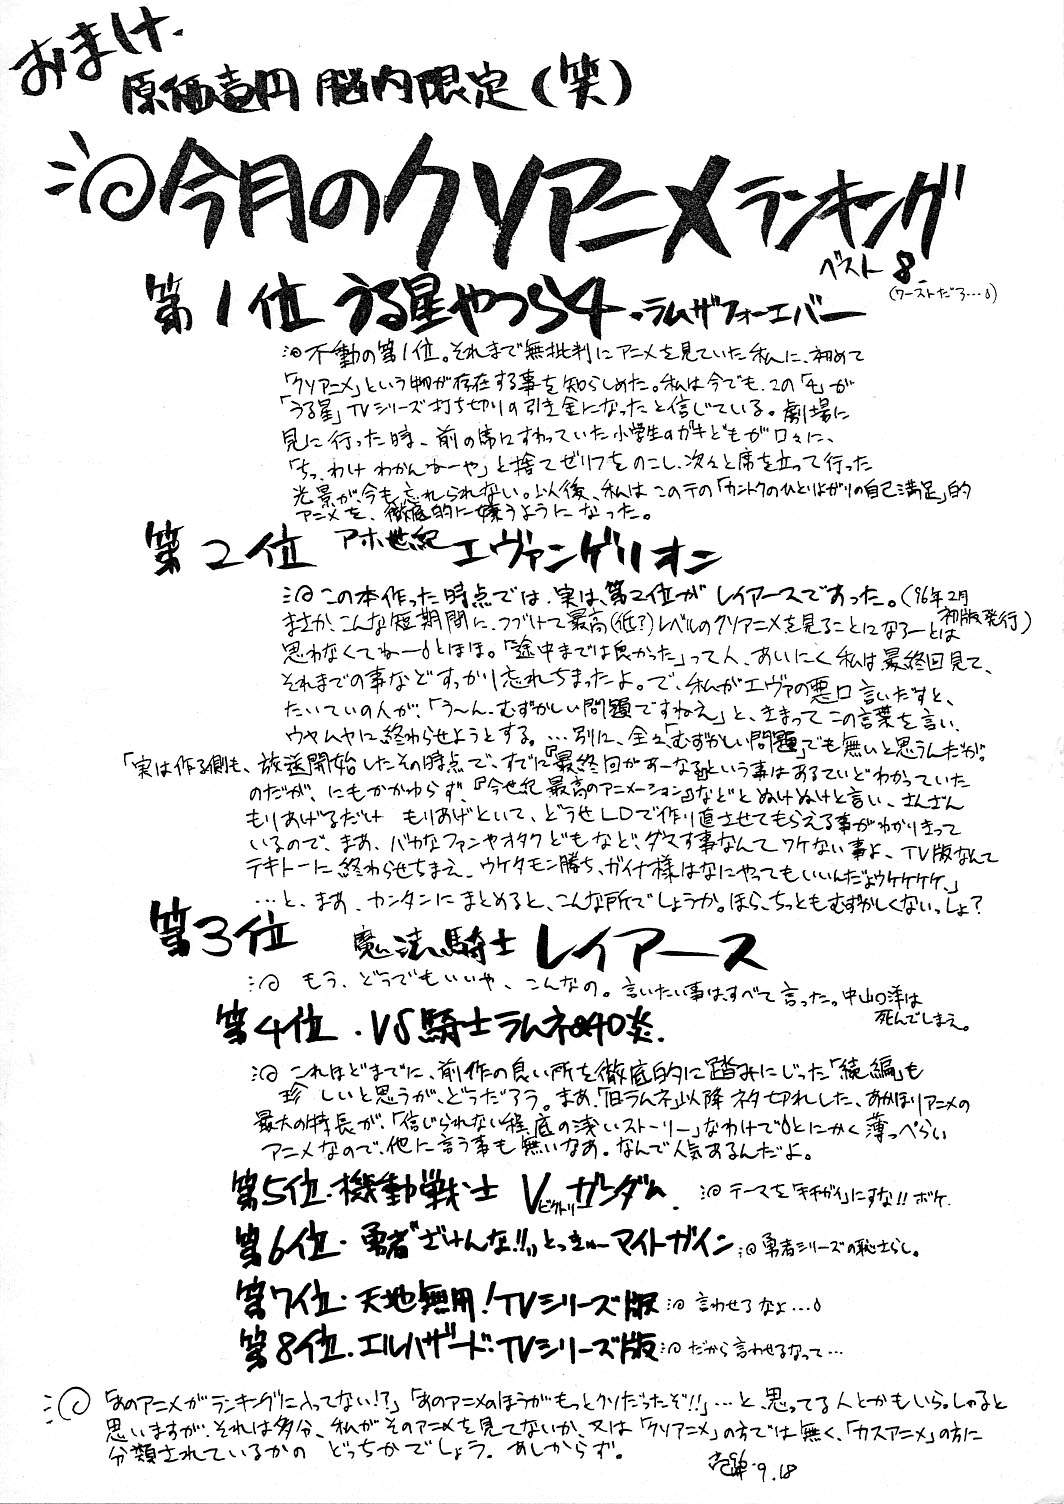 おまけ.
原価壱円 脳内限定(笑)
今月のクソアニメランキング
ベスト8
(ワーストだろ…)
第1位 うる星やつら4・ラムザフォーエバー
不動の第1位。それまで無批判にアニメを見ていた私に、初めて
「クソアニメ」という物が存在する事を知らしめた。私は今でも、この「4」が
「うる星」TVシリーズ打ち切りの引き金になったと信じている。劇場に
見に行った時、前の席にすわっていた小学生のガキどもが口々に、
「ちっ、わけわかんねーや」と捨てゼリフをのこし、次々と席を立って行った
光景が、今も忘れられない。以後、私はこのテの「カントクのひとりよがりの自己満足」的
アニメを、徹底的に嫌うようになった。
第2位 アホ世紀 エヴァンゲリオン
この本作った時点では、実は、第2位がレイアースであった。('96年2月
初版発行)
まさか、こんな短期間に、つづけて最高(低?)レベルのクソアニメを見ることになろーとは
思わなくてねーとほほ。「途中までは良かった」って人、あいにく私は最終回見て、
それまでの事などすっかり忘れちまったよ。で、私がエヴァの悪口言いだすと、
たいていの人が、「う〜ん、むずかしい問題ですねえ」と、きまってこの言葉を言い、
ウヤムヤに終わらせようとする。…別に、全々「むずかしい問題」でも無いと思うんだが。
「実は作る側も、放送開始したその時点で、すでに『最終回があーなる』という事はあるていどわかっていた
のだが、にもかかわらず、『今世紀最高のアニメーション』などとぬけぬけと言い、さんざん
もりあげるだけ もりあげといて、どうせLDで作り直させてもらえる事がわかりきって
いるので、まあ、バカなファンやオタクどもなど、ダマす事なんてワケない事よ、TV版なんて
テキトーに終わらせちまえ、ウケタモン勝ち、ガイナ様はなにやってもいいんだようケケケケ。」
…と、まあ、カンタンにまとめると、こんな所でしょうか。ほら、ちっともむずかしくないっしょ?
第3位 魔法騎士 レイアース
もう、どうでもいいや、こんなの。言いたい事はすべて言った。中山◯洋は
死んでしまえ。
第4位・VS騎士ラムネ&40炎.
これほどまでに、前作の良い所を徹底的に踏みにじった「続編」も
珍しいと思うが、どうだろう。まあ、「旧ラムネ」以降ネタ切れした、あかほりアニメの
最大の特長が、「信じられない程底の浅いストーリー」なわけでとにかく薄っぺらい
アニメなので、他に言う事も無いなあ。なんで人気あるんだよ。
第5位・機動戦士 Vガンダム
ビクトリー
テーマを「キチガイ」にすな!!ボケ.
第6位・勇者"ざけんな!!"とっきゅーマイトガイン 勇者シリーズの恥さらし。
第7位・天地無用!TVシリーズ版 言わせるなよ…
第8位・エルハザード・TVシリーズ版 だから言わせるなって…
「あのアニメがランキングに入ってない!?」「あのアニメのほうがもっとクソだったぞ!!」…と思ってる人とかもいらっしゃると
思いますが、それは多分、私がそのアニメを見てないか、又は「クソアニメ」の方では無く、「カスアニメ」の方に
分類されているかの どっちかでしょう。あしからず。
9.18